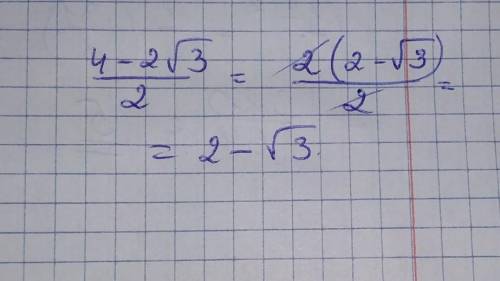 (4 - 2√3)/2 = 2(2 - √3)/2 =
= 2 - √3